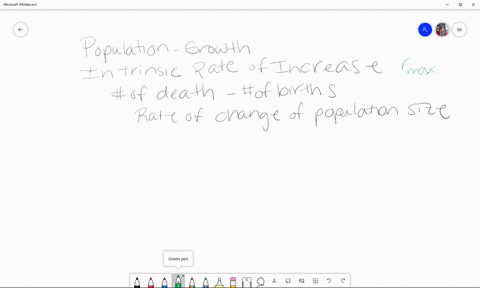 Microsoft Whiteboard
Population - Growth
Intrinsic Rate of Increase rmax
# of death - # of births
Rate of change of population size
Green pen